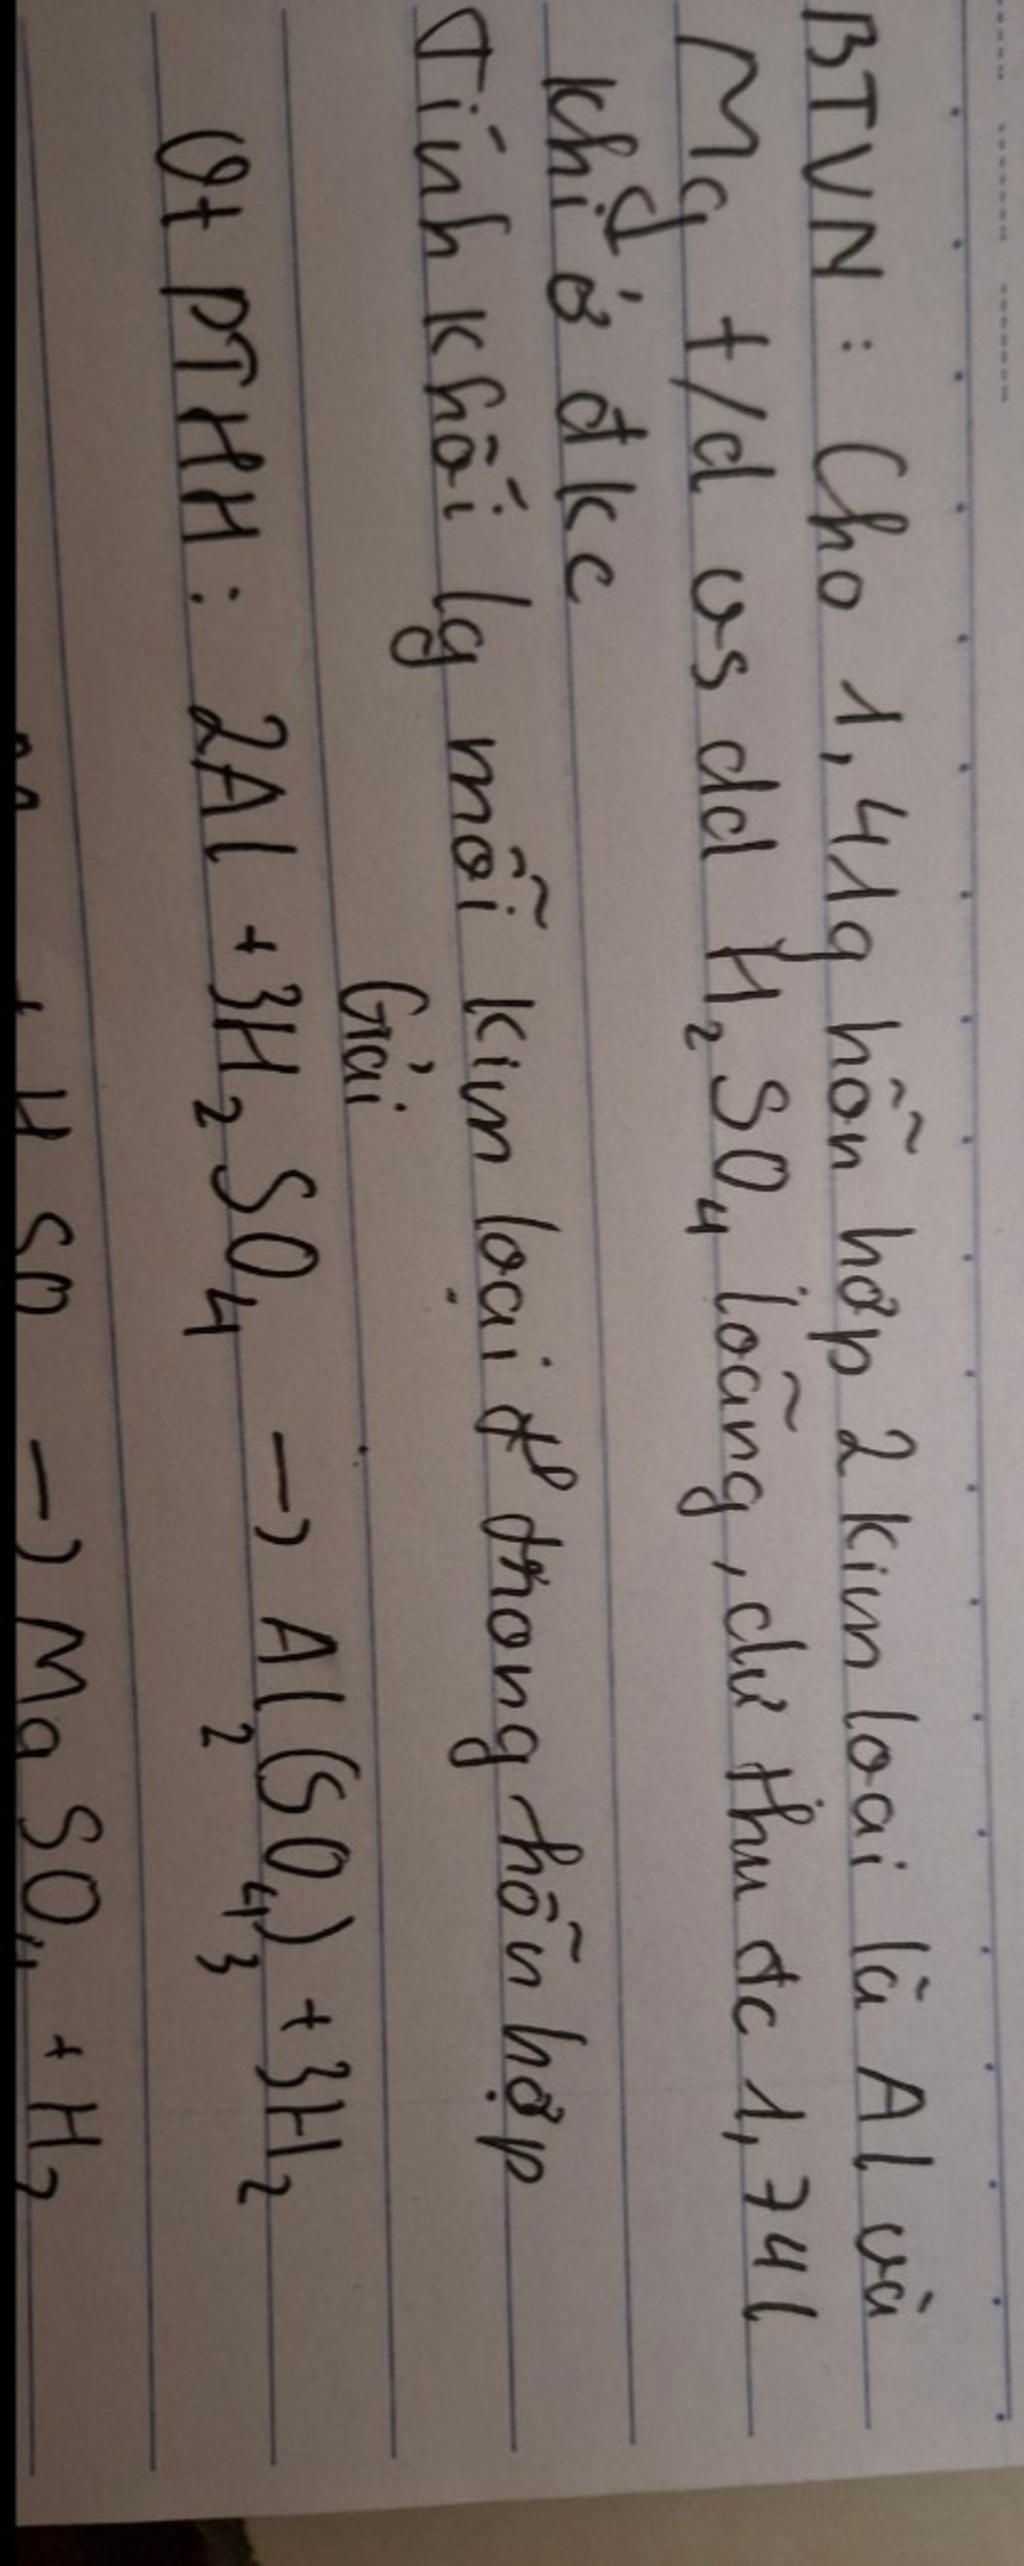 BTVN : Cho 1,41g hỗn hơp 2 kim loại là Al và
Mg t/d vs dd H₂SO₄ loãng, dư thu đc 1,74l
khí ở đkc
Tính khối lg mỗi kim loại đ trong hỗn hợp
Giải
Ot PTHH : 2Al + 3H₂SO₄ → Al₂(SO₄)₃ + 3H₂
H SO → Mg SO₄ + H₂